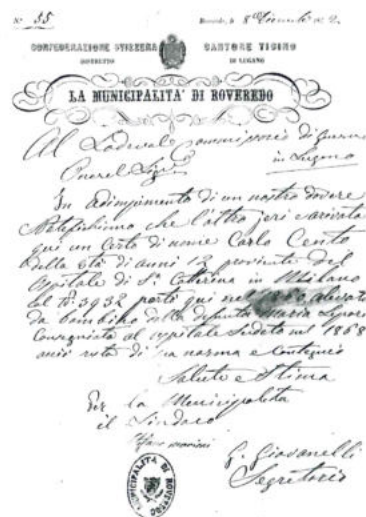 N.° 35 Roveredo, li 8 
CONFEDERAZIONE SVIZZERA CANTONE TICINO
DISTRETTO DI LUGANO
LA MUNICIPALITA' DI ROVEREDO
Al Lodevole Commissario di Governo
in Lugano
In adempimento di un nostro dovere
che l'altro jeri è arrivato
qui un certo di nome Carlo Cento
della età di anni 12 proviente del
Ospitale di S.ta Catterina in Milano
al N° 3932 portò qui nel 1860 alevato
da bambino dalla Maria
Consegniato al ospitale Sudeto nel 1868
di sua norma e Contegnio
Saluto e Stima
Per la Municipalità
il Sindaco
G. Giovanelli
Segretario
MUNICIPALITÀ DI ROVEREDO